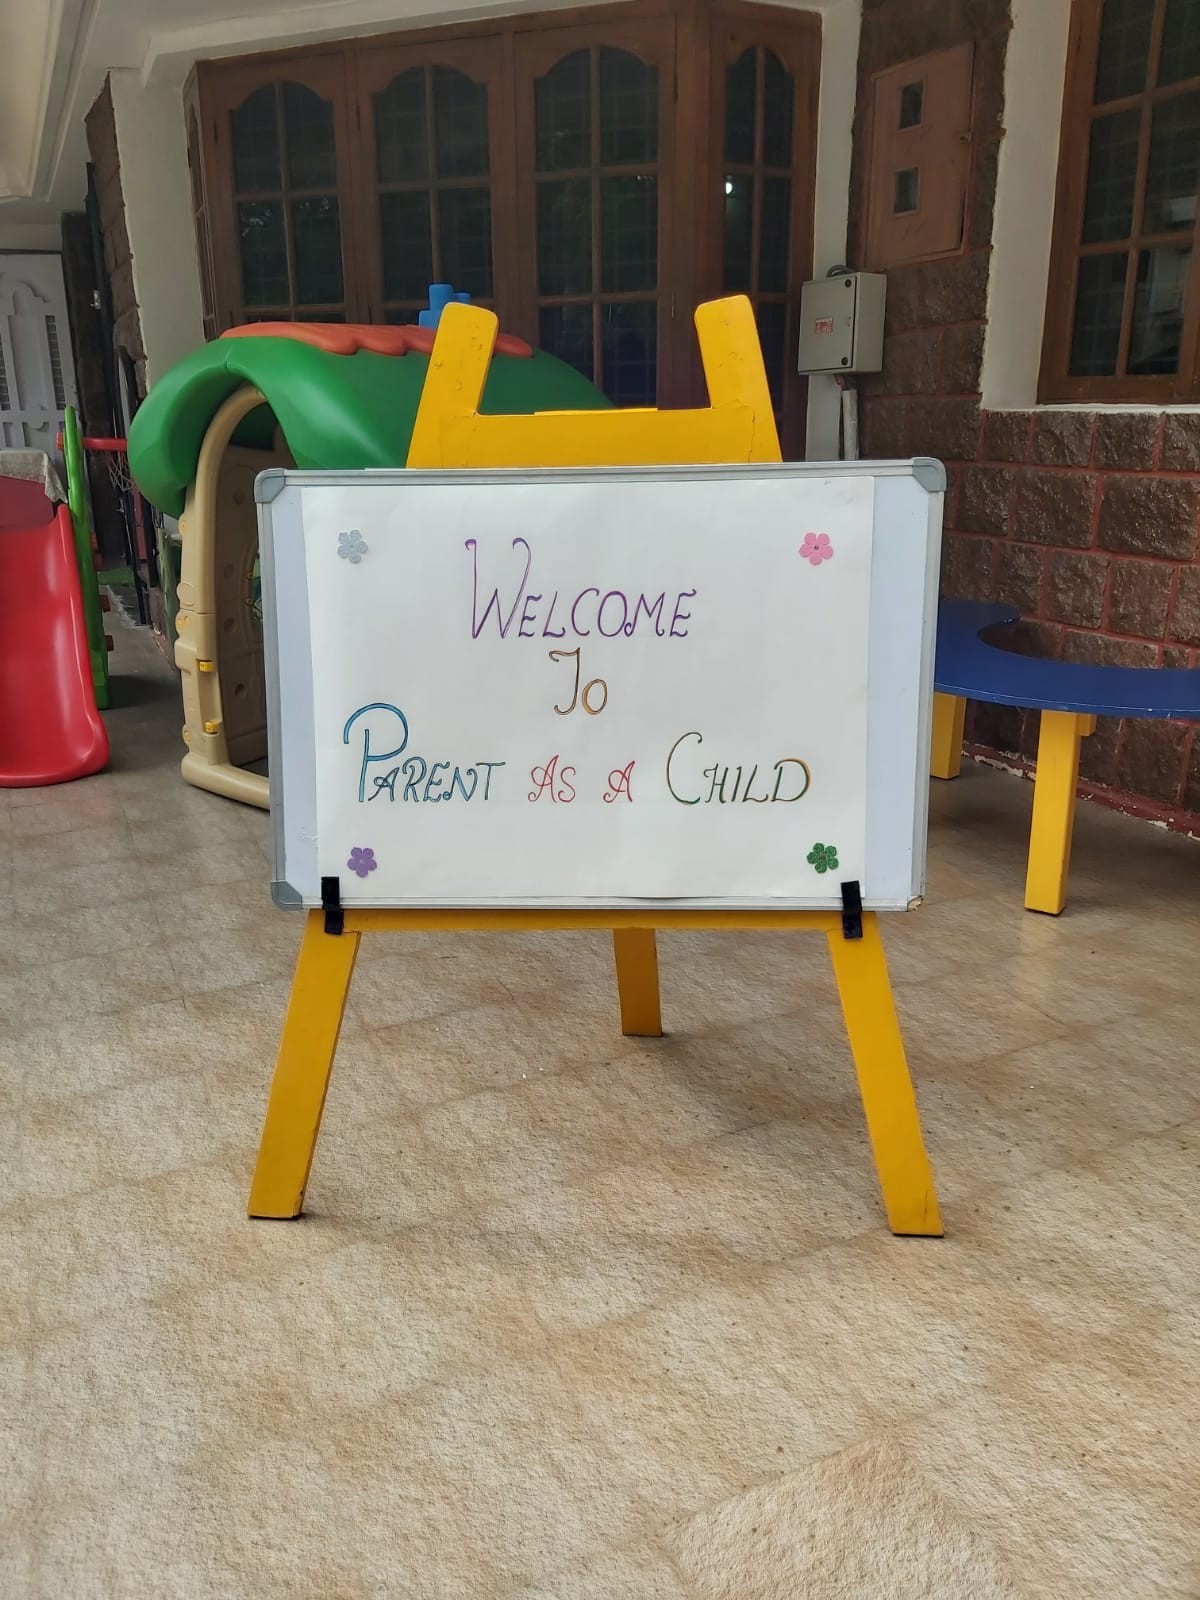 WELCOME
TO
PARENT AS A CHILD